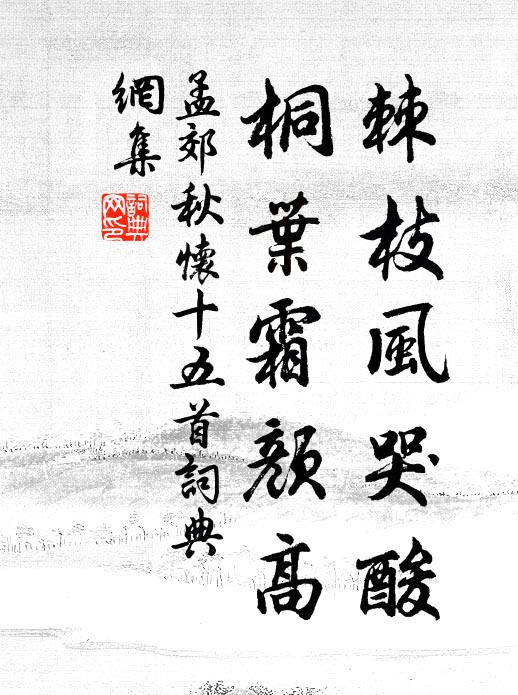 棘枝風哭酸
桐葉霜顏高
孟郊秋懷十五首詞典
網集
詞典
网印